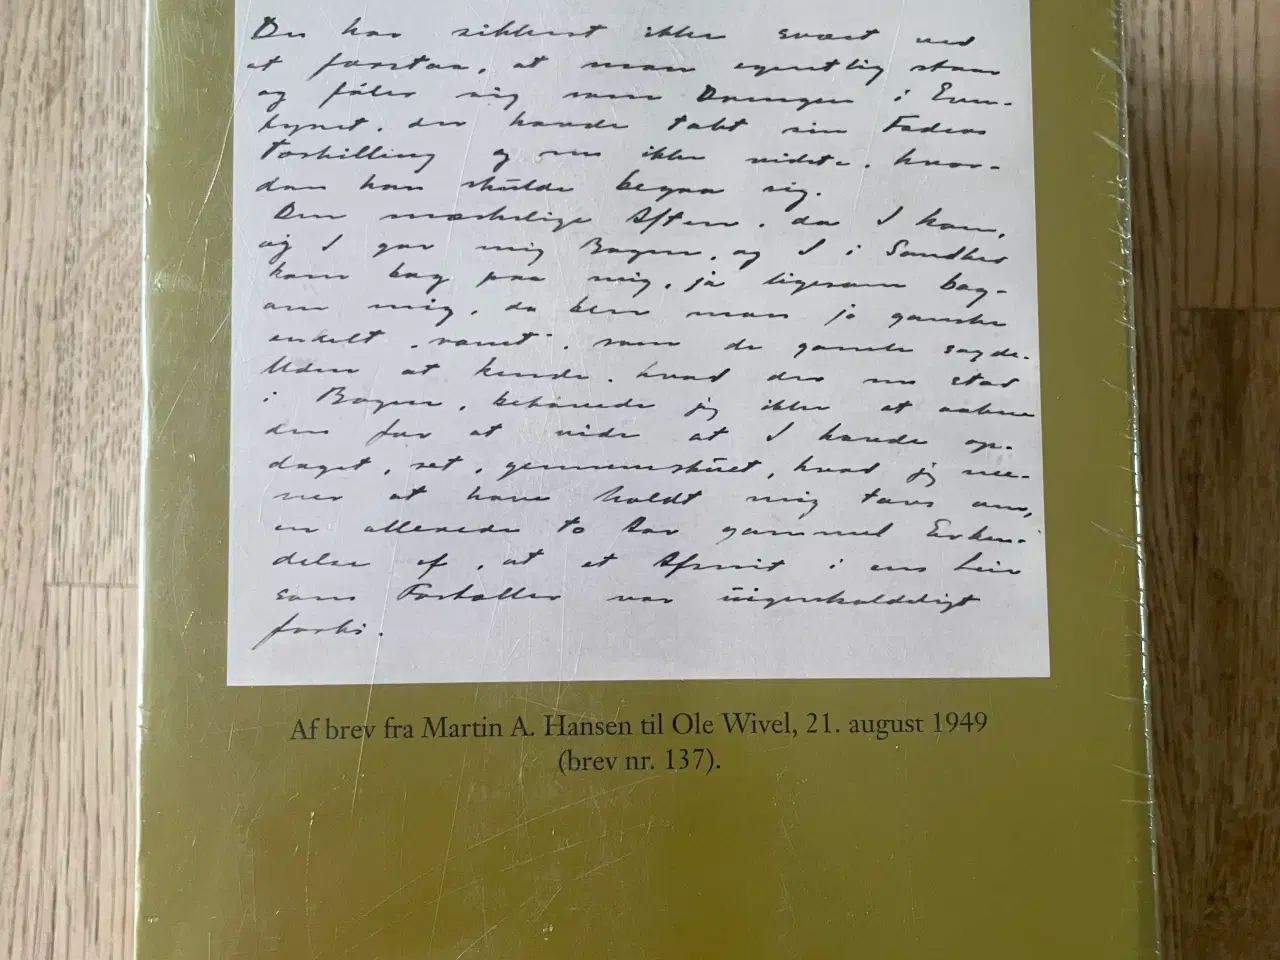 Du har sikkert ikke svært ved
at forstaa, at man egentlig staar
og føler sig som Drengen i Even-
tyret, der havde tabt sin Faders
Toskilling og nu ikke vidste, hvor-
dan han skulde begaa sig.
Den mærkelige Aften, da I kom,
og I gav mig Bogen, og I i Sandhed
kom bag paa mig, ja ligesom bag-
om mig, da blev man jo ganske
enkelt "vaniet", som de gamle sagde.
Uden at kende, hvad der nu stod
i Bogen, behøvede jeg ikke at aabne
den for at vide at I havde op-
daget, set, gennemskuet, hvad jeg me-
ner at have holdt mig tavs om,
en allerede to Aar gammel Erken-
delse af, at et Afsnit i ens Liv
som Fortæller var uigenkaldeligt
forbi.
Af brev fra Martin A. Hansen til Ole Wivel, 21. august 1949
(brev nr. 137).